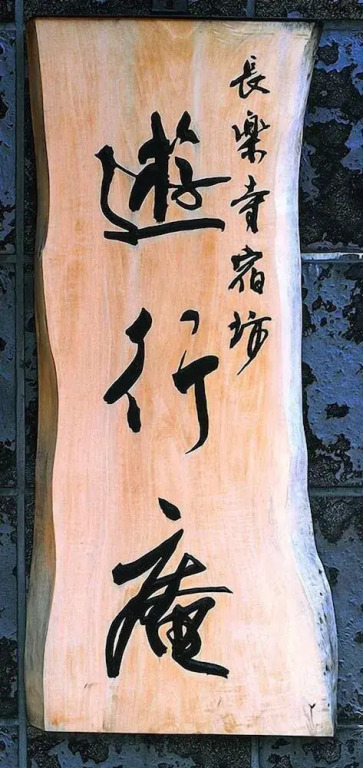 長樂寺宿坊
遊行庵